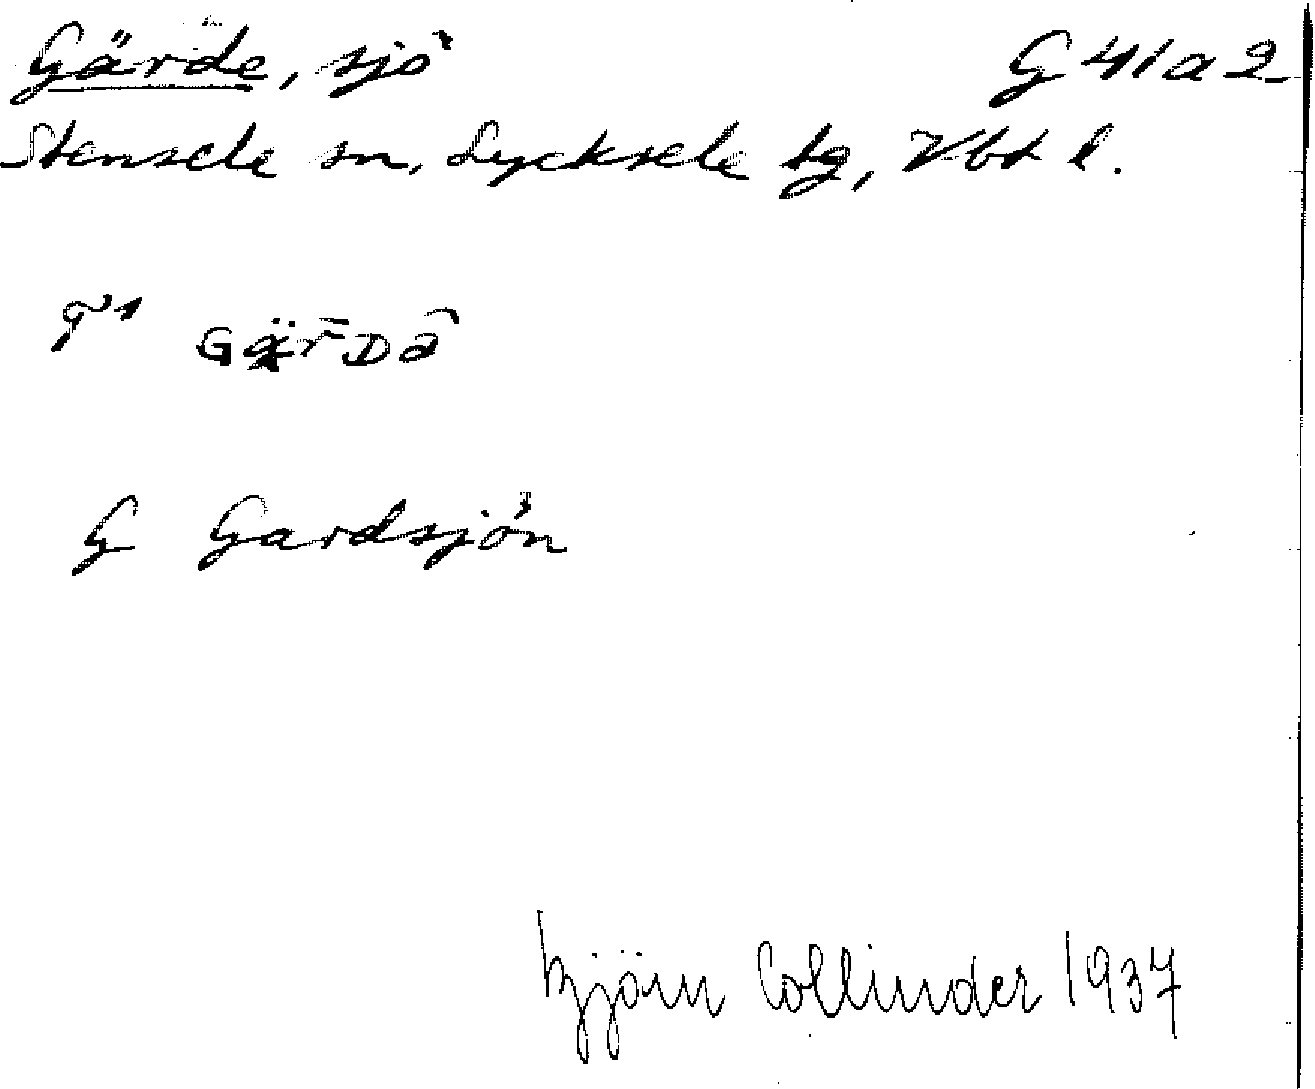 Gärde, sjö G 41a2
Stensele sn, Lycksele tg, Vbt l.
G Gardsjön
Björn Collinder 1937